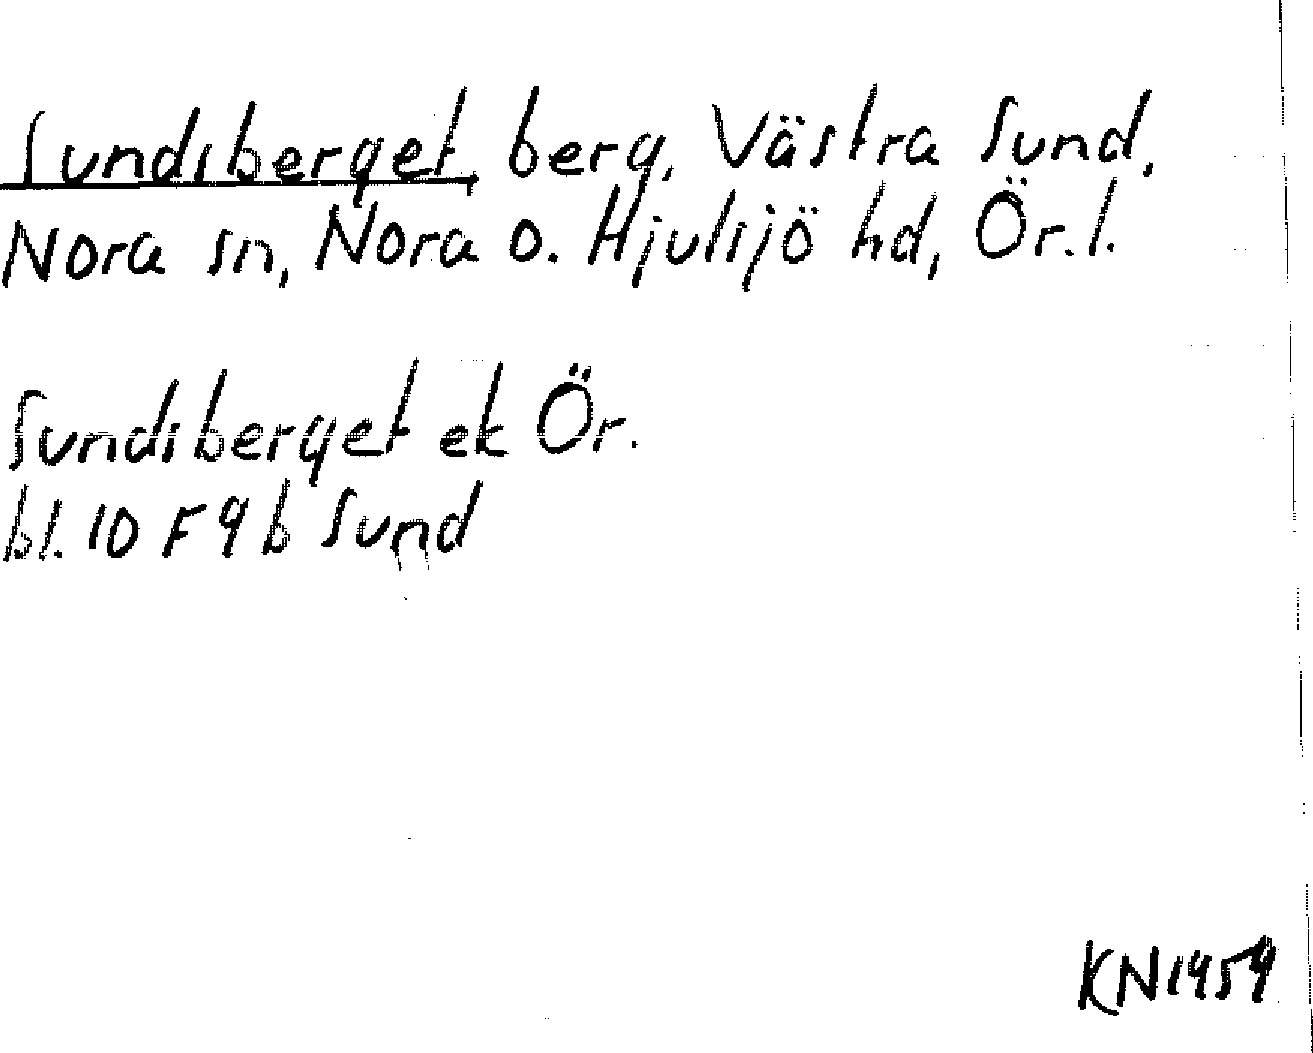 Sundsberget, berg, Västra Sund,
Nora sn, Nora o. Hjulsjö hd, Ör. l.
Sundsberget ek Ör.
bl. 10 F 9 b Sund
KN1959